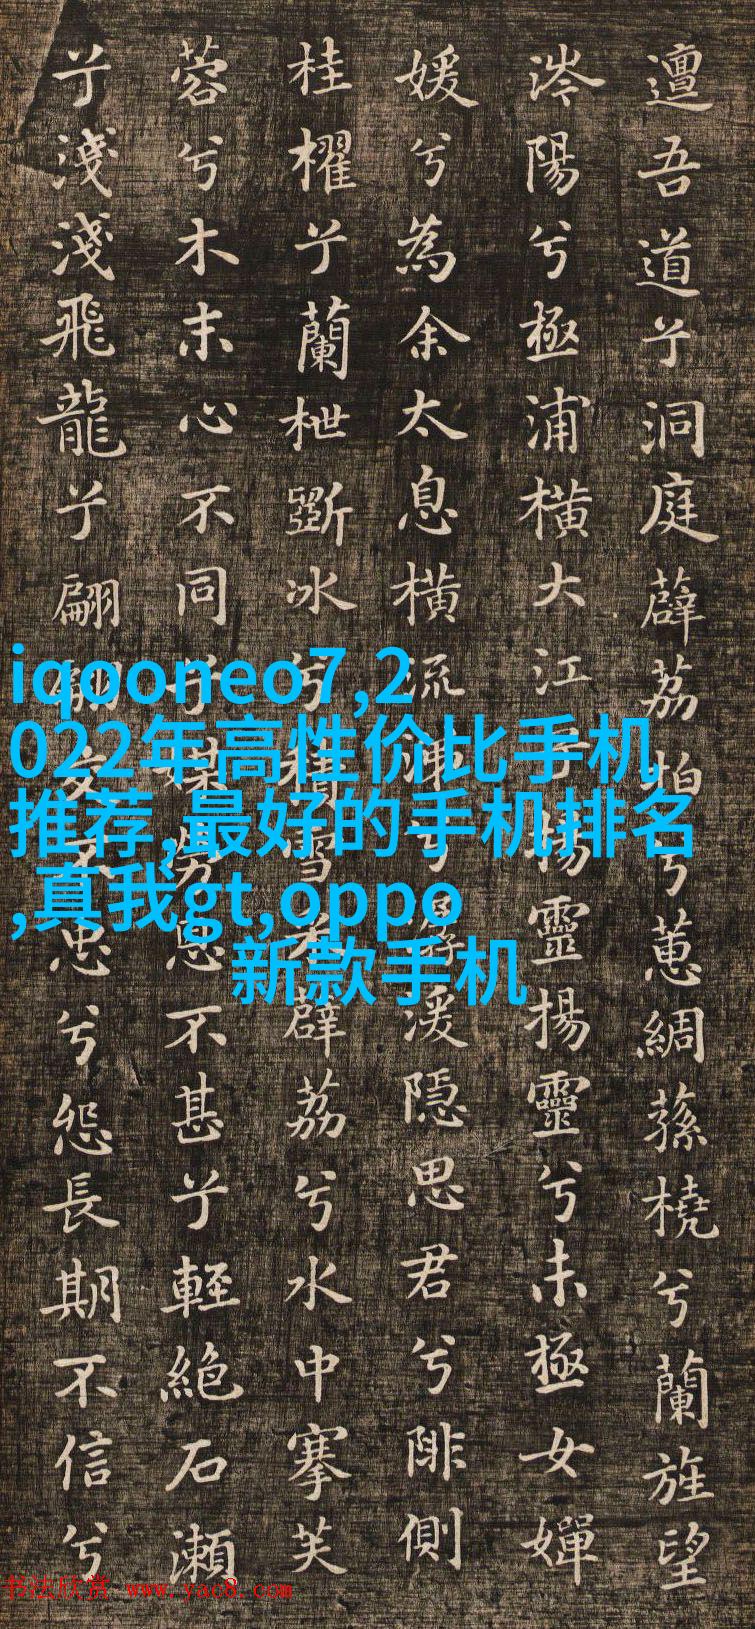 邅吾道兮洞庭薜荔柏兮蕙綢蓀橈兮蘭旌望
涔陽兮極浦橫大江兮揚靈揚靈兮未極女嬋
媛兮為余太息橫流涕兮潺湲隱思君兮陫側
桂櫂兮蘭枻斲冰兮積雪采薜荔兮水中搴芙
蓉兮木末心不同兮媒勞恩不甚兮輕絕石瀨
兮淺淺飛龍兮翩翩交不忠兮怨長期不信兮
iqooneo7,2
022年高性价比手机
推荐,最好的手机排名
,真我gt,oppo
新款手机
书法欣赏 www.yac8.com